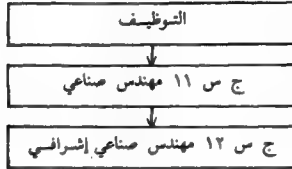 التوظيف
ج س ١١ مهندس صناعي
ج س ١٢ مهندس صناعي إشرافي